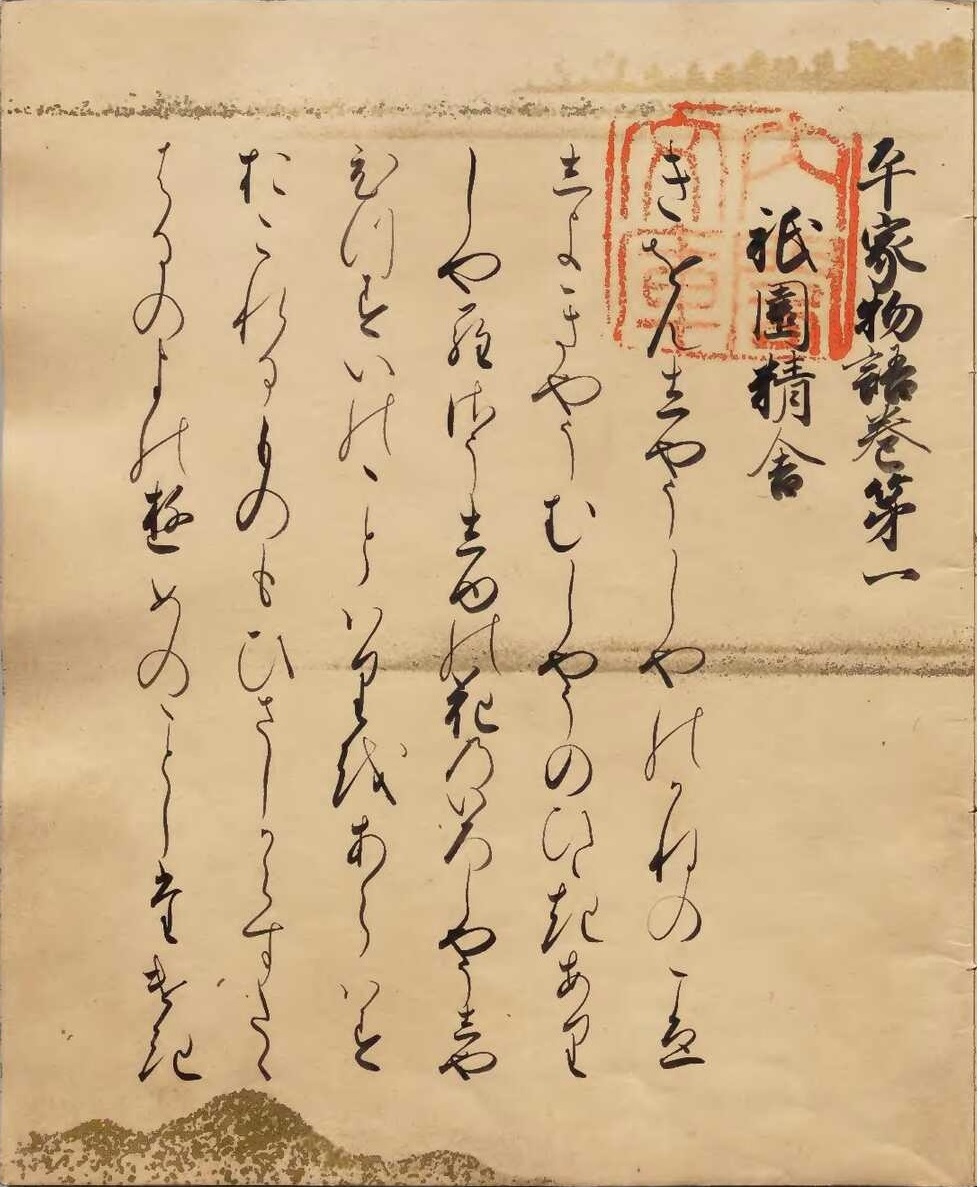 平家物語巻第一
祇園精舎
きをんしやうしやのかねのこゑ
しよきやうむしやうのひゝきあり
しやらさうしゆの花のいろしやうしや
ひつすいのことはりをあらはす
おこれるものもひさしからすたゝ
はるのよのゆめのことしたけき